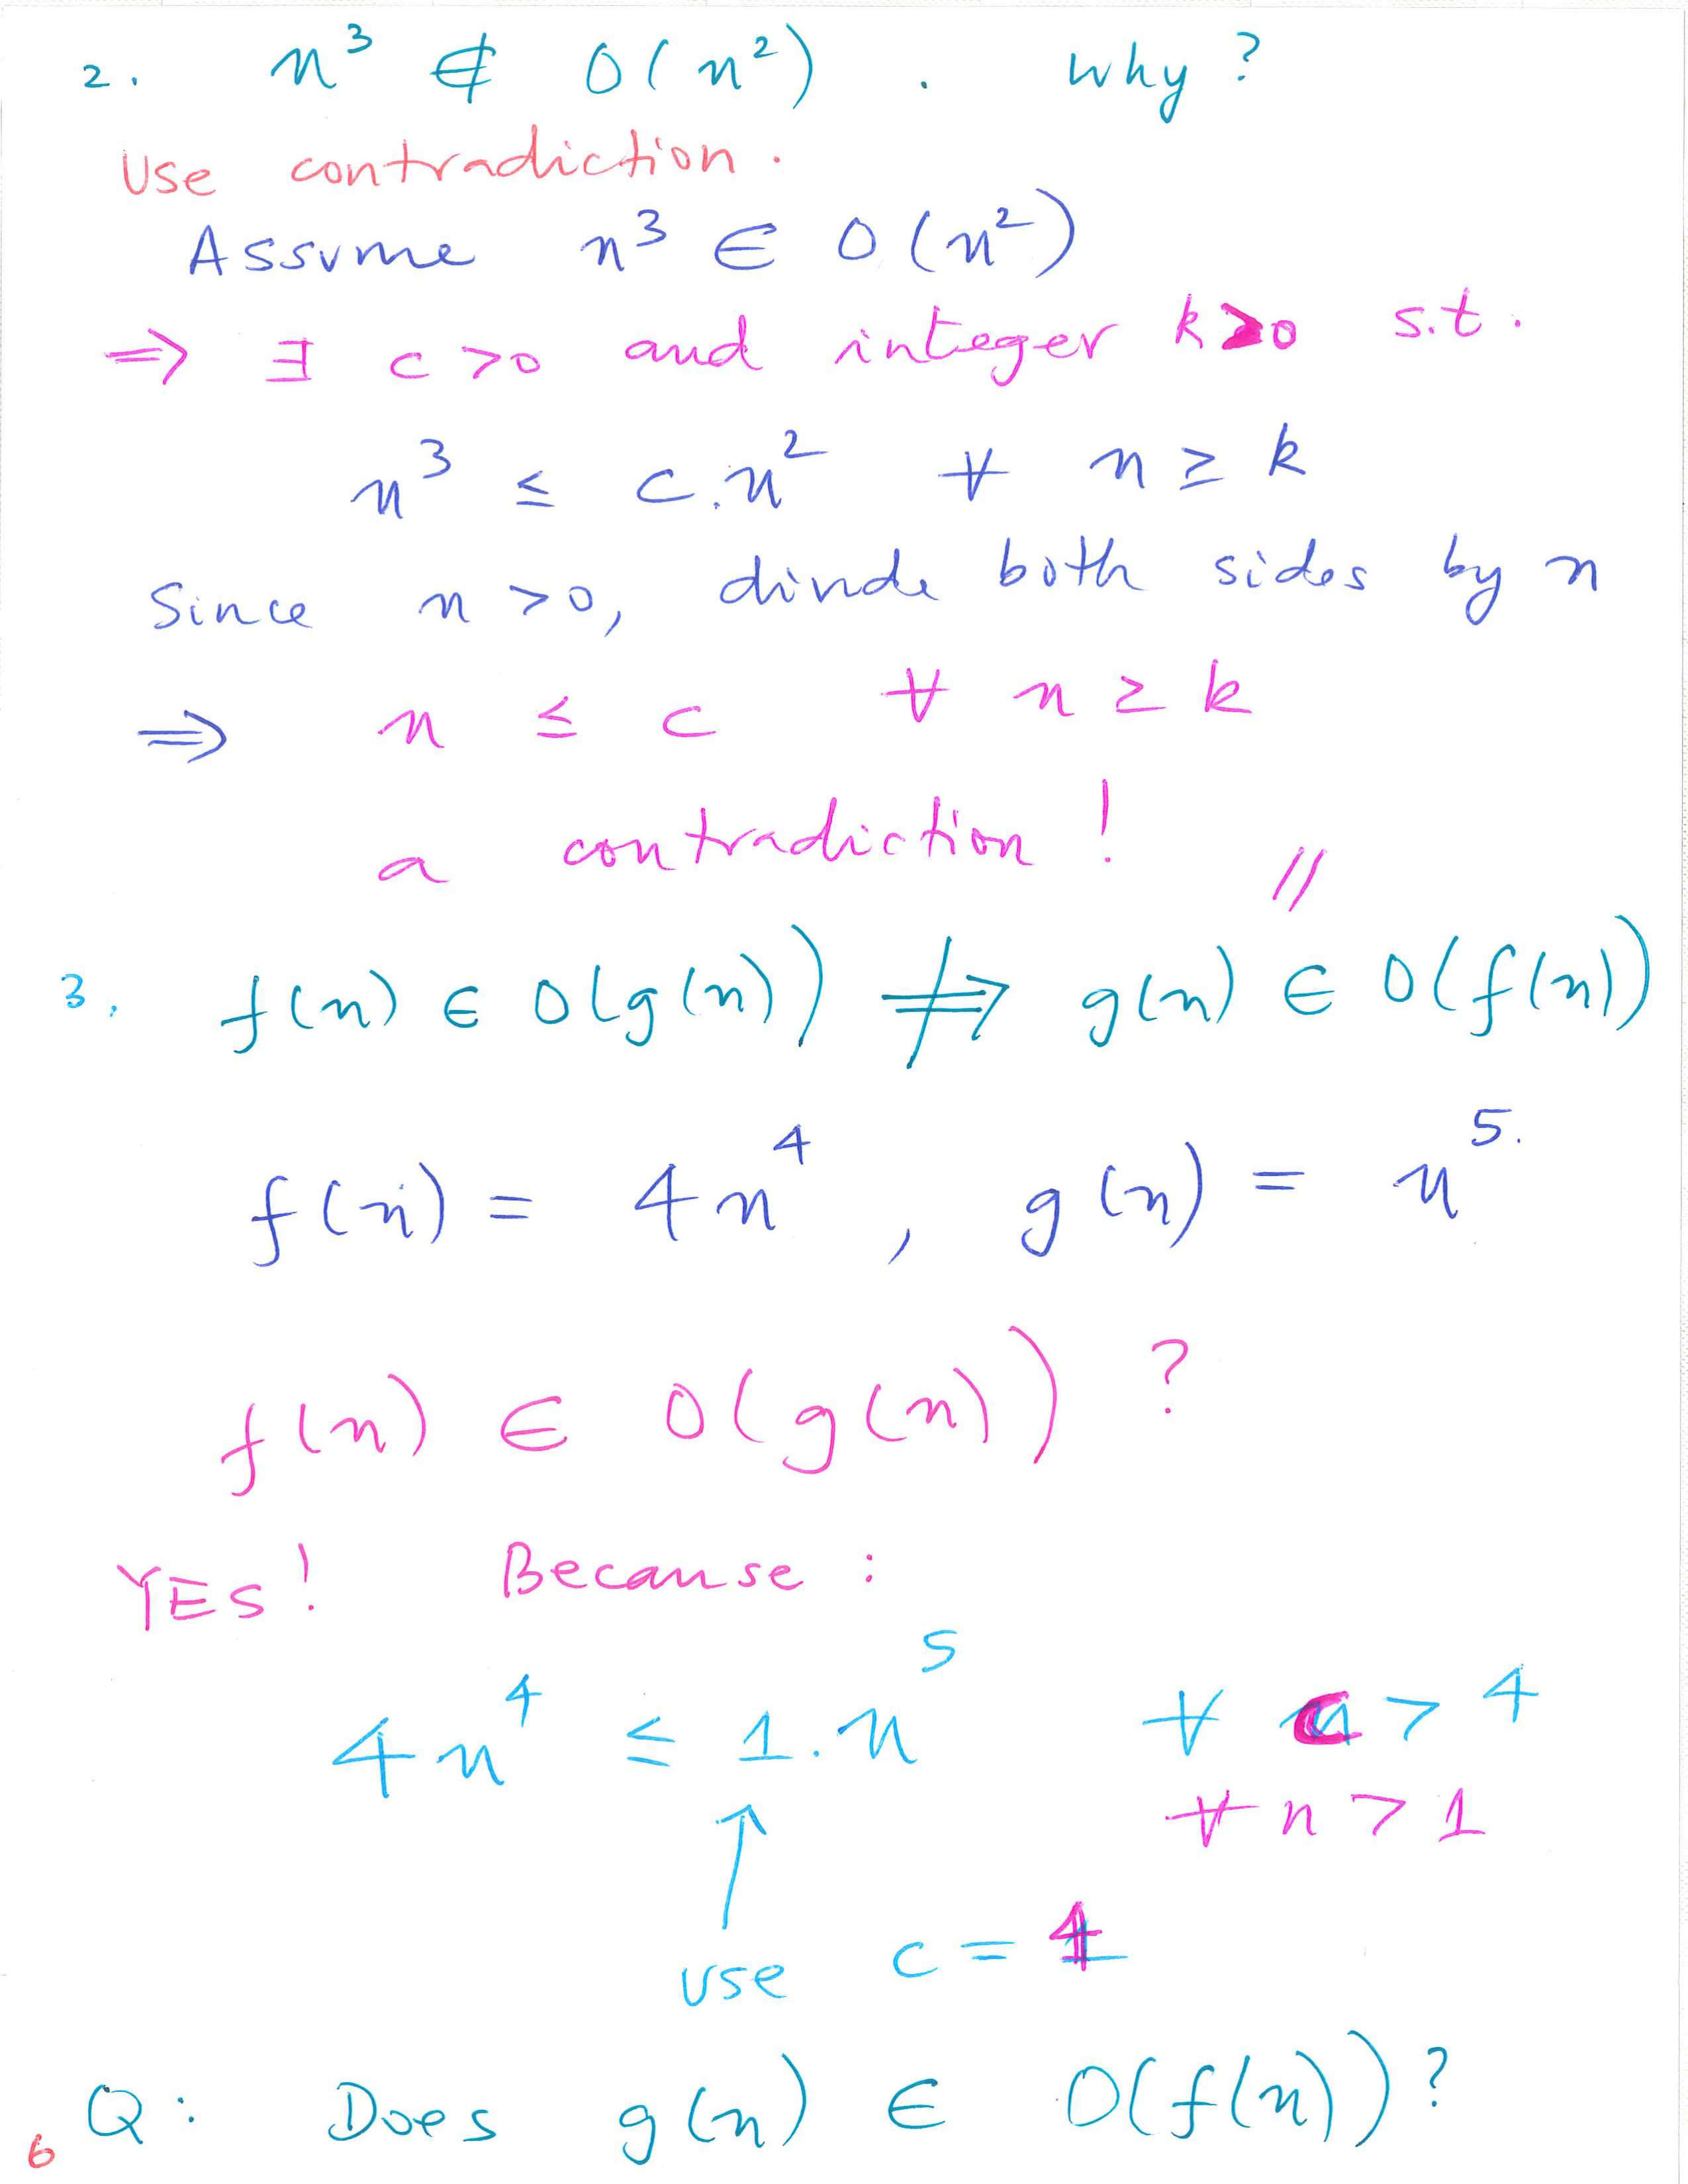 2. n³ ∉ O(n²). Why?
Use contradiction.
Assume n³ ∈ O(n²)
⇒ ∃ c>0 and integer k>0 s.t.
n³ ≤ c.n² ∀ n ≥ k
Since n>0, divide both sides by n
⇒ n ≤ c ∀ n ≥ k
a contradiction! //
3. f(n) ∈ O(g(n)) ⇏ g(n) ∈ O(f(n))
f(n) = 4n⁴, g(n) = n⁵.
f(n) ∈ O(g(n))?
YES! Because:
4n⁴ ≤ 1.n⁵ ∀ c > 4
∀ n > 1
↑
use c = 4
Q: Does g(n) ∈ O(f(n))?
6